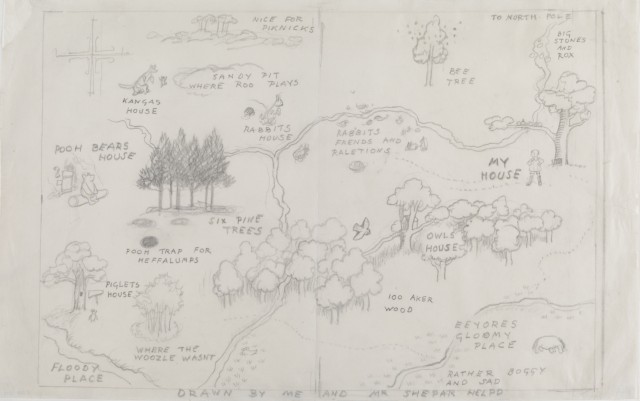 NICE FOR
PIKNICKS
TO NORTH POLE
BIG
STONES
AND
ROX
BEE
TREE
SANDY PIT
WHERE ROO PLAYS
KANGAS
HOUSE
RABBITS
HOUSE
RABBITS
FRENDS AND
RALETIONS
POOH BEARS
HOUSE
MY
HOUSE
SIX PINE
TREES
OWLS
HOUSE
POOH TRAP FOR
HEFFALUMPS
PIGLETS
HOUSE
100 AKER
WOOD
EEYORES
GLOOMY
PLACE
WHERE THE
WOOZLE WASNT
FLOODY
PLACE
RATHER BOGGY
AND SAD
DRAWN BY ME AND MR SHEPARD HELPD